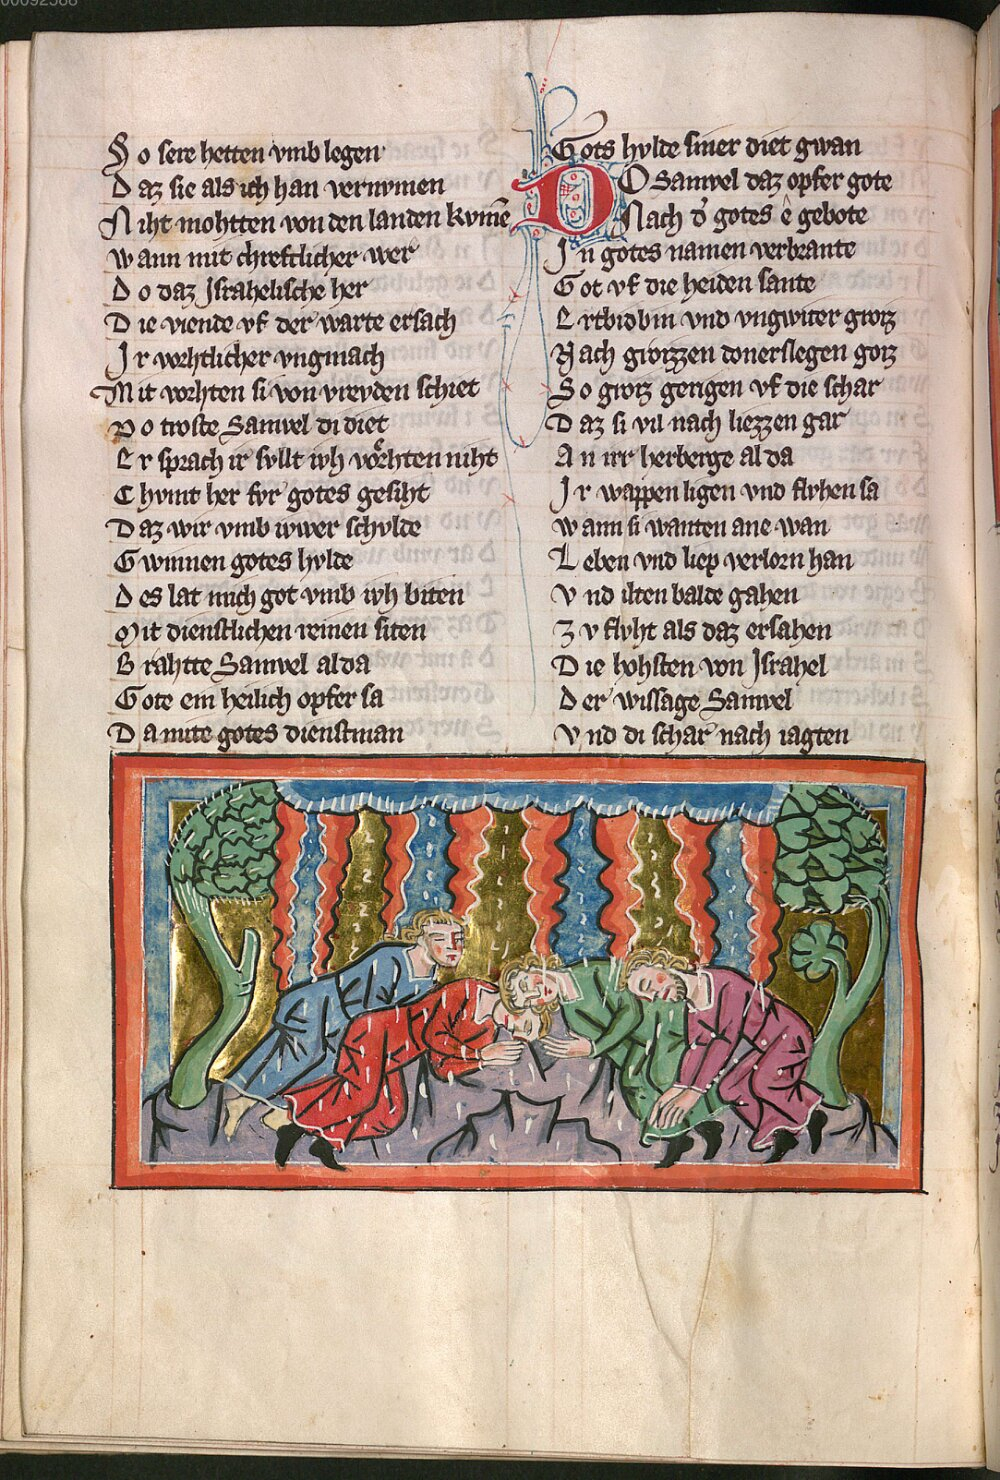 00092588
So sere hetten vmb legen
Daz sie als ich han vernvmen
Niht mohtten von den landen kvmē
Wann mit chreftlicher wer
Do daz Jsrahelische her
Die viende vf der warte ersach
Jr vorhtlicher vngmach
Mit vorhten si von vrevden schiet
Do troste Samvel di diet
Er sprach ir svllt ivh vorhten niht
Chvmt her fvr gotes gesiht
Daz wir vmb ivwer schvlde
Gwinnen gotes hvlde
Des lat mich got vmb ivh biten
Mit dienstlichen reinen siten
Brahtte Samvel alda
Gote ein heilich opfer sa
Da mite gotes dienstman
Gots hvlde siner diet gwan
DO Samvel daz opfer gote
Nach d' gotes ê gebote
Jn gotes namen verbrante
Got vf die heiden sante
Ertbidbin vnd vngwiter groz
Nach grozzen donerslegen goz
So groz gerigen vf die schar
Daz si vil nach liezzen gar
An irr herberge alda
Jr wappen ligen vnd flvhen sa
Wann si wanten ane wan
Leben vnd liep verlorn han
Vnd ilten balde gahen
Zv flvht als daz ersahen
Die hohsten von Jsrahel
Der wissage Samvel
Vnd di schar nach iagten